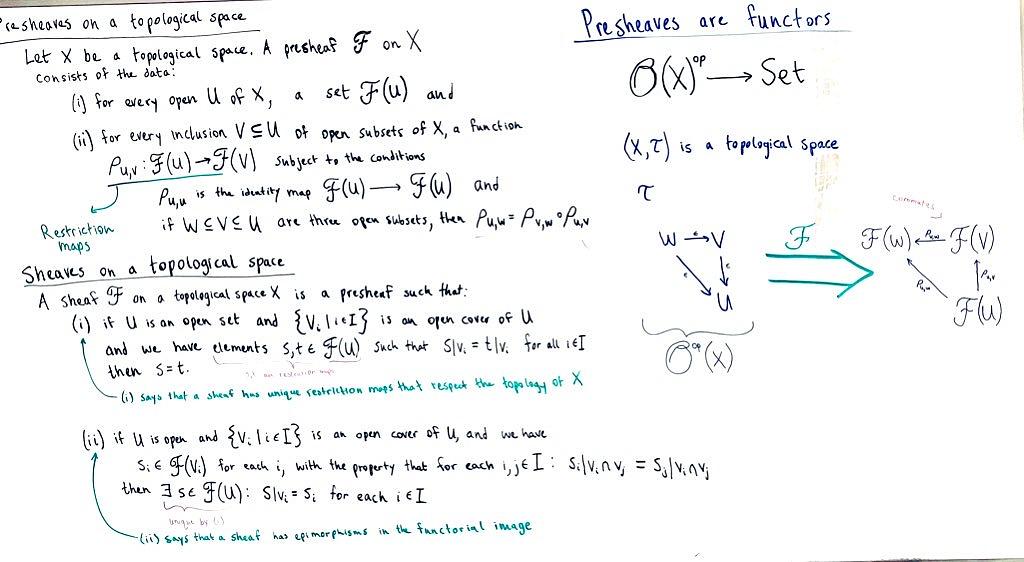 Presheaves on a topological space
Let X be a topological space. A presheaf ℱ on X
consists of the data:
(i) for every open U of X, a set ℱ(U) and
(ii) for every inclusion V ⊆ U of open subsets of X, a function
ρ_{U,V} : ℱ(U) → ℱ(V) subject to the conditions
ρ_{U,U} is the identity map ℱ(U) ⟶ ℱ(U) and
if W ⊆ V ⊆ U are three open subsets, then ρ_{U,W} = ρ_{V,W} ∘ ρ_{U,V}
Restriction
maps
Sheaves on a topological space
A sheaf ℱ on a topological space X is a presheaf such that:
(i) if U is an open set and {V_i | i ∈ I} is an open cover of U
and we have elements s,t ∈ ℱ(U) such that s|V_i = t|V_i for all i ∈ I
then s = t.
s,t are restriction maps
(i) says that a sheaf has unique restriction maps that respect the topology of X
(ii) if U is open and {V_i | i ∈ I} is an open cover of U, and we have
s_i ∈ ℱ(V_i) for each i, with the property that for each i,j ∈ I : s_i|V_i ∩ V_j = s_j|V_i ∩ V_j
then ∃ s ∈ ℱ(U): s|V_i = s_i for each i ∈ I
unique by (i)
(ii) says that a sheaf has epimorphisms in the functorial image
Presheaves are functors
𝒪(X)^op ⟶ Set
(X, τ) is a topological space
τ
W → V
U
𝒪^op(X)
ℱ
commutes
ℱ(W) ← ℱ(V)
ℱ(U)